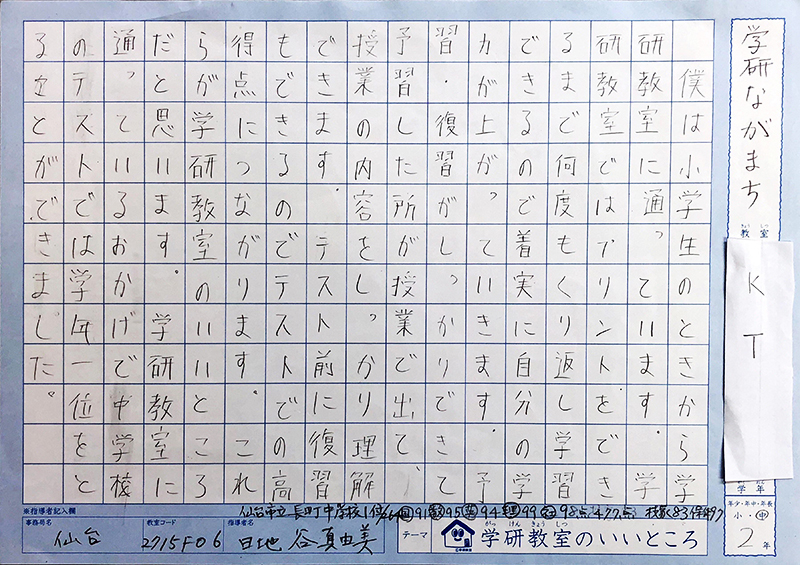 学研ながまち
教室
きょう しつ
K T
学年
年少・年中・年長
小・中
2年
僕は小学生のときから学
研教室に通っています。学
研教室ではプリントをでき
るまで何度もくり返し学習
できるので着実に自分の学
力が上がっていきます。予
習・復習がしっかりできて
予習した所が授業で出て
授業の内容をしっかり理解
できます。テスト前に復習
もできるのでテストでの高
得点につながります。これ
らが学研教室のいいところ
だと思います。学研教室に
通っているおかげで中学校
のテストでは学年一位をと
ることができました。
※指導者記入欄
仙台市立長町中学校1位
事務局名
仙台
教室コード
2715F06
指導者名
谷真由美
テーマ
がっ けん きょう しつ
学研教室のいいところ